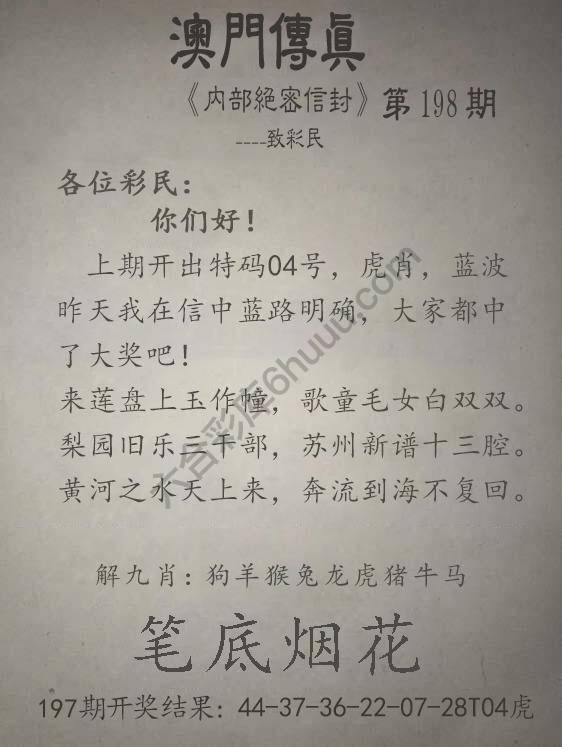 澳門傳眞
《内部絕密信封》第198期
----致彩民
各位彩民:
你们好!
上期开出特码04号，虎肖，蓝波
昨天我在信中蓝路明确，大家都中
了大奖吧!
来莲盘上玉作幢，歌童毛女白双双。
梨园旧乐三千部，苏州新谱十三腔。
黄河之水天上来，奔流到海不复回。
解九肖:狗羊猴兔龙虎猪牛马
笔底烟花
197期开奖结果: 44-37-36-22-07-28T04虎
六合彩库6huuu.com